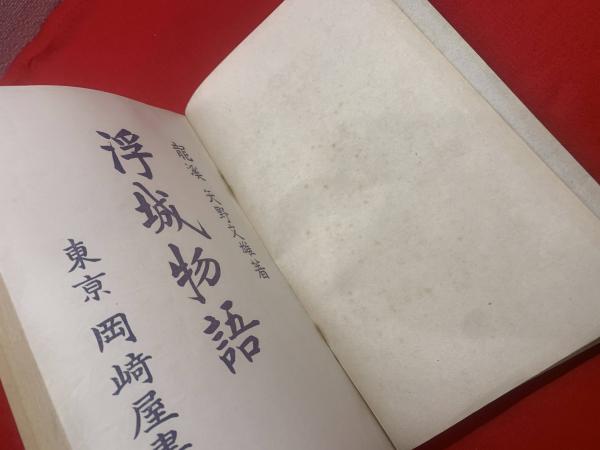 龍溪矢野文雄著
浮城物語
東京 岡崎屋書